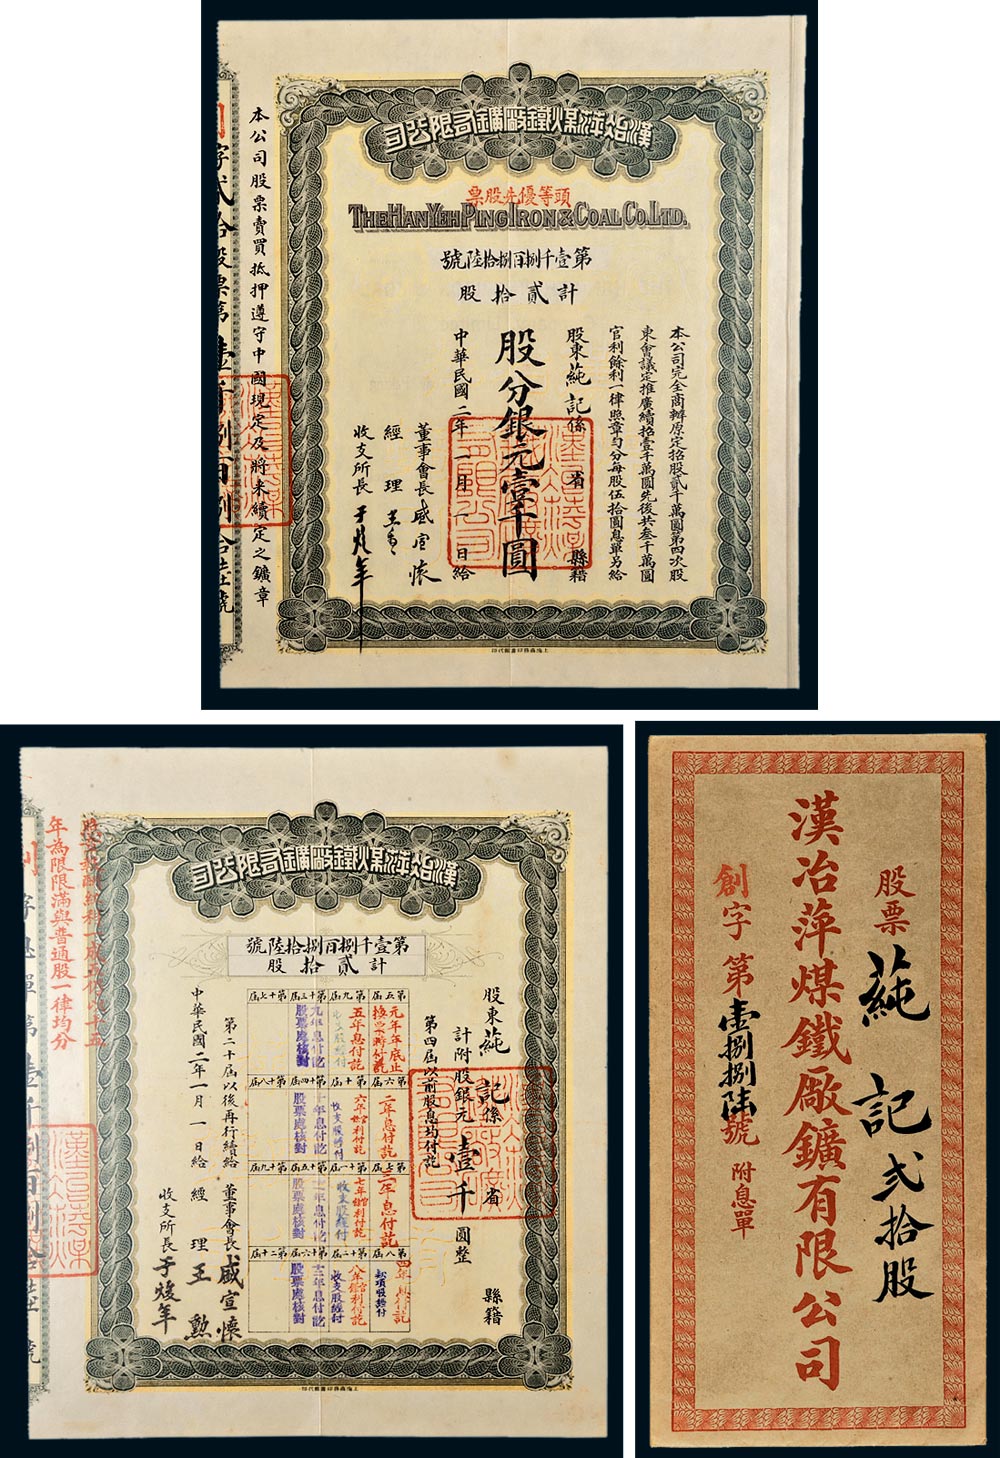 漢冶萍煤鐵廠鑛有限公司
頭等優先股票
THE HAN YEH PING IRON & COAL CO. LTD.
第壹千捌百捌拾陸號
計貳拾股
本公司完全商辦原定招股貳千萬圓第四次股
東會議定推廣續招壹千萬圓先後共叁千萬圓
官利餘利一律照章勻分每股伍拾圓息單另給
股東蒓記係省縣籍
股分銀元壹千圓
中華民國二年一月一日給
董事會長盛宣懷
經理
收支所長于焌年
本公司股票賣買抵押遵守中國現定及將來續定之鑛章
字貳拾股票第壹千捌百捌拾陸號
上海商務印書館代印
漢冶萍煤鐵廠鑛有限公司
第壹千捌百捌拾陸號
計貳拾股
股東蒓記係省縣籍
計附股銀元壹千圓整
第四屆以前股息均付訖
第五屆 第九屆 第十三屆 第十七屆
元年年底止換票時付訖
五年息付訖
九年息付訖
股票處核對
第六屆 第十屆 第十四屆 第十八屆
二年息付訖
六年官利付訖
收支股經付
十年息付訖
股票處核對
第七屆 第十一屆 第十五屆 第十九屆
三年息付訖
七年官利付訖
收支股經付
十一年息付訖
股票處核對
第八屆 第十二屆 第十六屆 第二十屆
四年息付訖
八年官利付訖
收支股經付
十二年息付訖
股票處核對
第二十屆以後再行續給
中華民國二年一月一日給
董事會長盛宣懷
經理王勲
收支所長于焌年
年為限限滿與普通股一律均分
字息單第壹千捌百捌拾陸號
上海商務印書館代印
股票蒓記貳拾股
漢冶萍煤鐵廠鑛有限公司
創字第壹捌捌陸號附息單